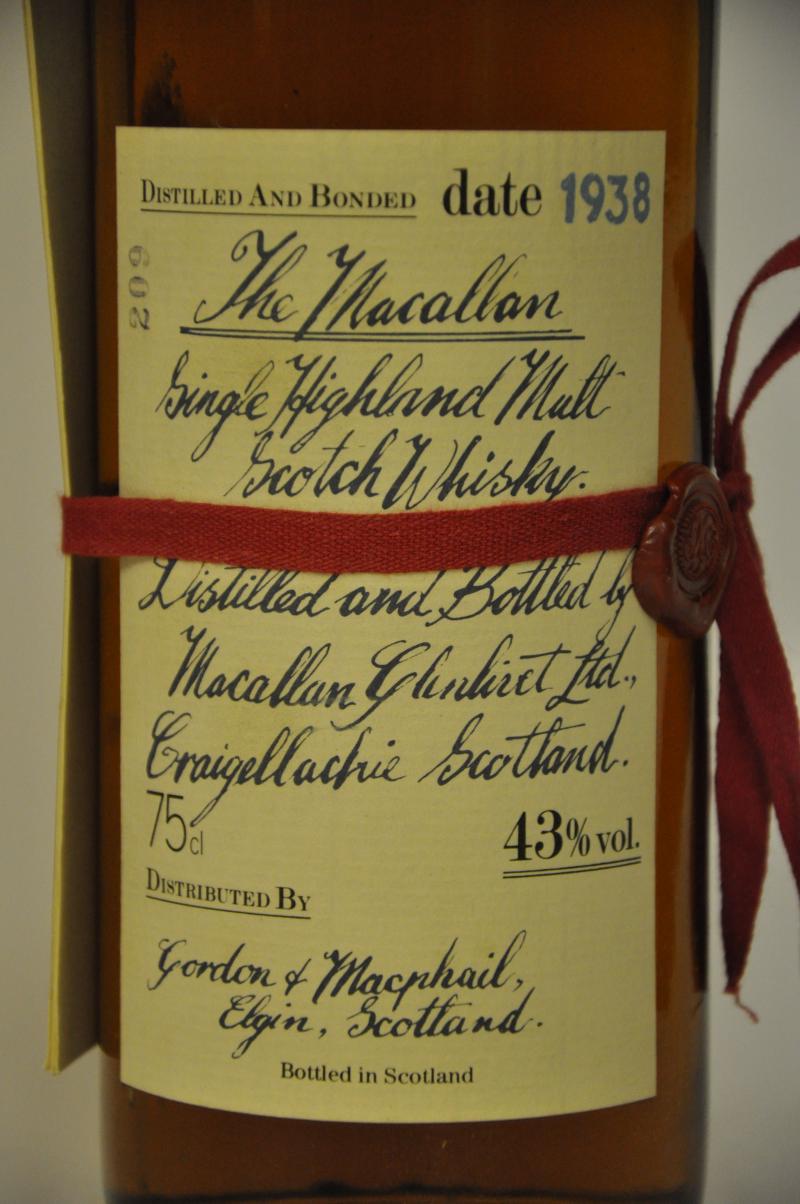 DISTILLED AND BONDED date 1938
209
The Macallan
Single Highland Malt
Scotch Whisky.
Distilled and Bottled by
Macallan Glenlivet Ltd.,
Craigellachie Scotland.
75cl
43% vol.
DISTRIBUTED BY
Gordon & Macphail,
Elgin, Scotland.
Bottled in Scotland